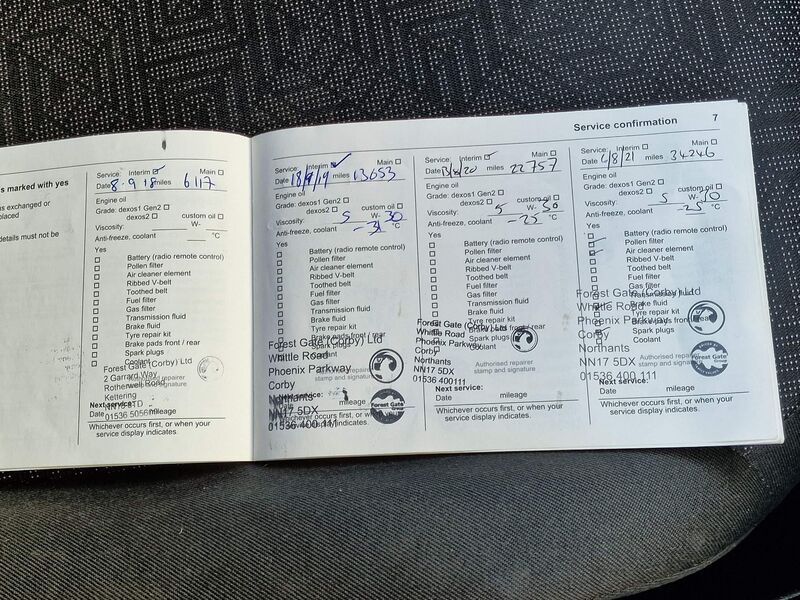 Service confirmation 7
s marked with yes
ns exchanged or
placed
details must not be
Service: Interim Main
Date 8.9.18 miles 6117
Engine oil
Grade: dexos1 Gen2
dexos2 custom oil
Viscosity: W-
Anti-freeze, coolant °C
Yes
Battery (radio remote control)
Pollen filter
Air cleaner element
Ribbed V-belt
Toothed belt
Fuel filter
Gas filter
Transmission fluid
Brake fluid
Tyre repair kit
Brake pads front / rear
Spark plugs
Coolant
Forest Gate (Corby) Ltd
2 Garrard Way
Authorised repairer
stamp and signature
Rotherwell Road
Kettering
Next service:
Date mileage
01536
Whichever occurs first, or when your
service display indicates.
Service: Interim Main
Date 18/9/19 miles 13053
Engine oil
Grade: dexos1 Gen2
dexos2 custom oil
Viscosity: 5 W- 30
Anti-freeze, coolant -31 °C
Yes
Battery (radio remote control)
Pollen filter
Air cleaner element
Ribbed V-belt
Toothed belt
Fuel filter
Gas filter
Transmission fluid
Brake fluid
Tyre repair kit
Brake pads front / rear
Forest Gate (Corby) Ltd
Whittle Road
Phoenix Parkway
Authorised repairer
stamp and signature
Corby
Northants
NN17 5DX
mileage
01536 400 111
Forest Gate
Whichever occurs first, or when your
service display indicates.
Service: Interim Main
Date /20 miles 22757
Engine oil
Grade: dexos1 Gen2
dexos2 custom oil
Viscosity: 5 W-
Anti-freeze, coolant -25 °C
Yes
Battery (radio remote control)
Pollen filter
Air cleaner element
Ribbed V-belt
Toothed belt
Fuel filter
Gas filter
Transmission fluid
Brake fluid
Tyre repair kit
Brake pads front / rear
Spark plugs
Coolant
Forest Gate (Corby) Ltd
Whittle Road
Phoenix Parkway
Corby
Northants
NN17 5DX
01536 400111
Authorised repairer
stamp and signature
Next service:
Date mileage
Whichever occurs first, or when your
service display indicates.
Service: Interim Main
Date 6/8/21 miles 34246
Engine oil
Grade: dexos1 Gen2
dexos2 custom oil
Viscosity: 5 W-
Anti-freeze, coolant -25 °C
Yes
Battery (radio remote control)
Pollen filter
Air cleaner element
Ribbed V-belt
Toothed belt
Fuel filter
Gas filter
Transmission fluid
Brake fluid
Tyre repair kit
Brake pads front / rear
Spark plugs
Coolant
Forest Gate (Corby) Ltd
Whittle Road
Phoenix Parkway
Corby
Northants
NN17 5DX
01536 400 111
Forest Gate
Authorised repairer
stamp and signature
Next service:
Date mileage
Whichever occurs first, or when your
service display indicates.